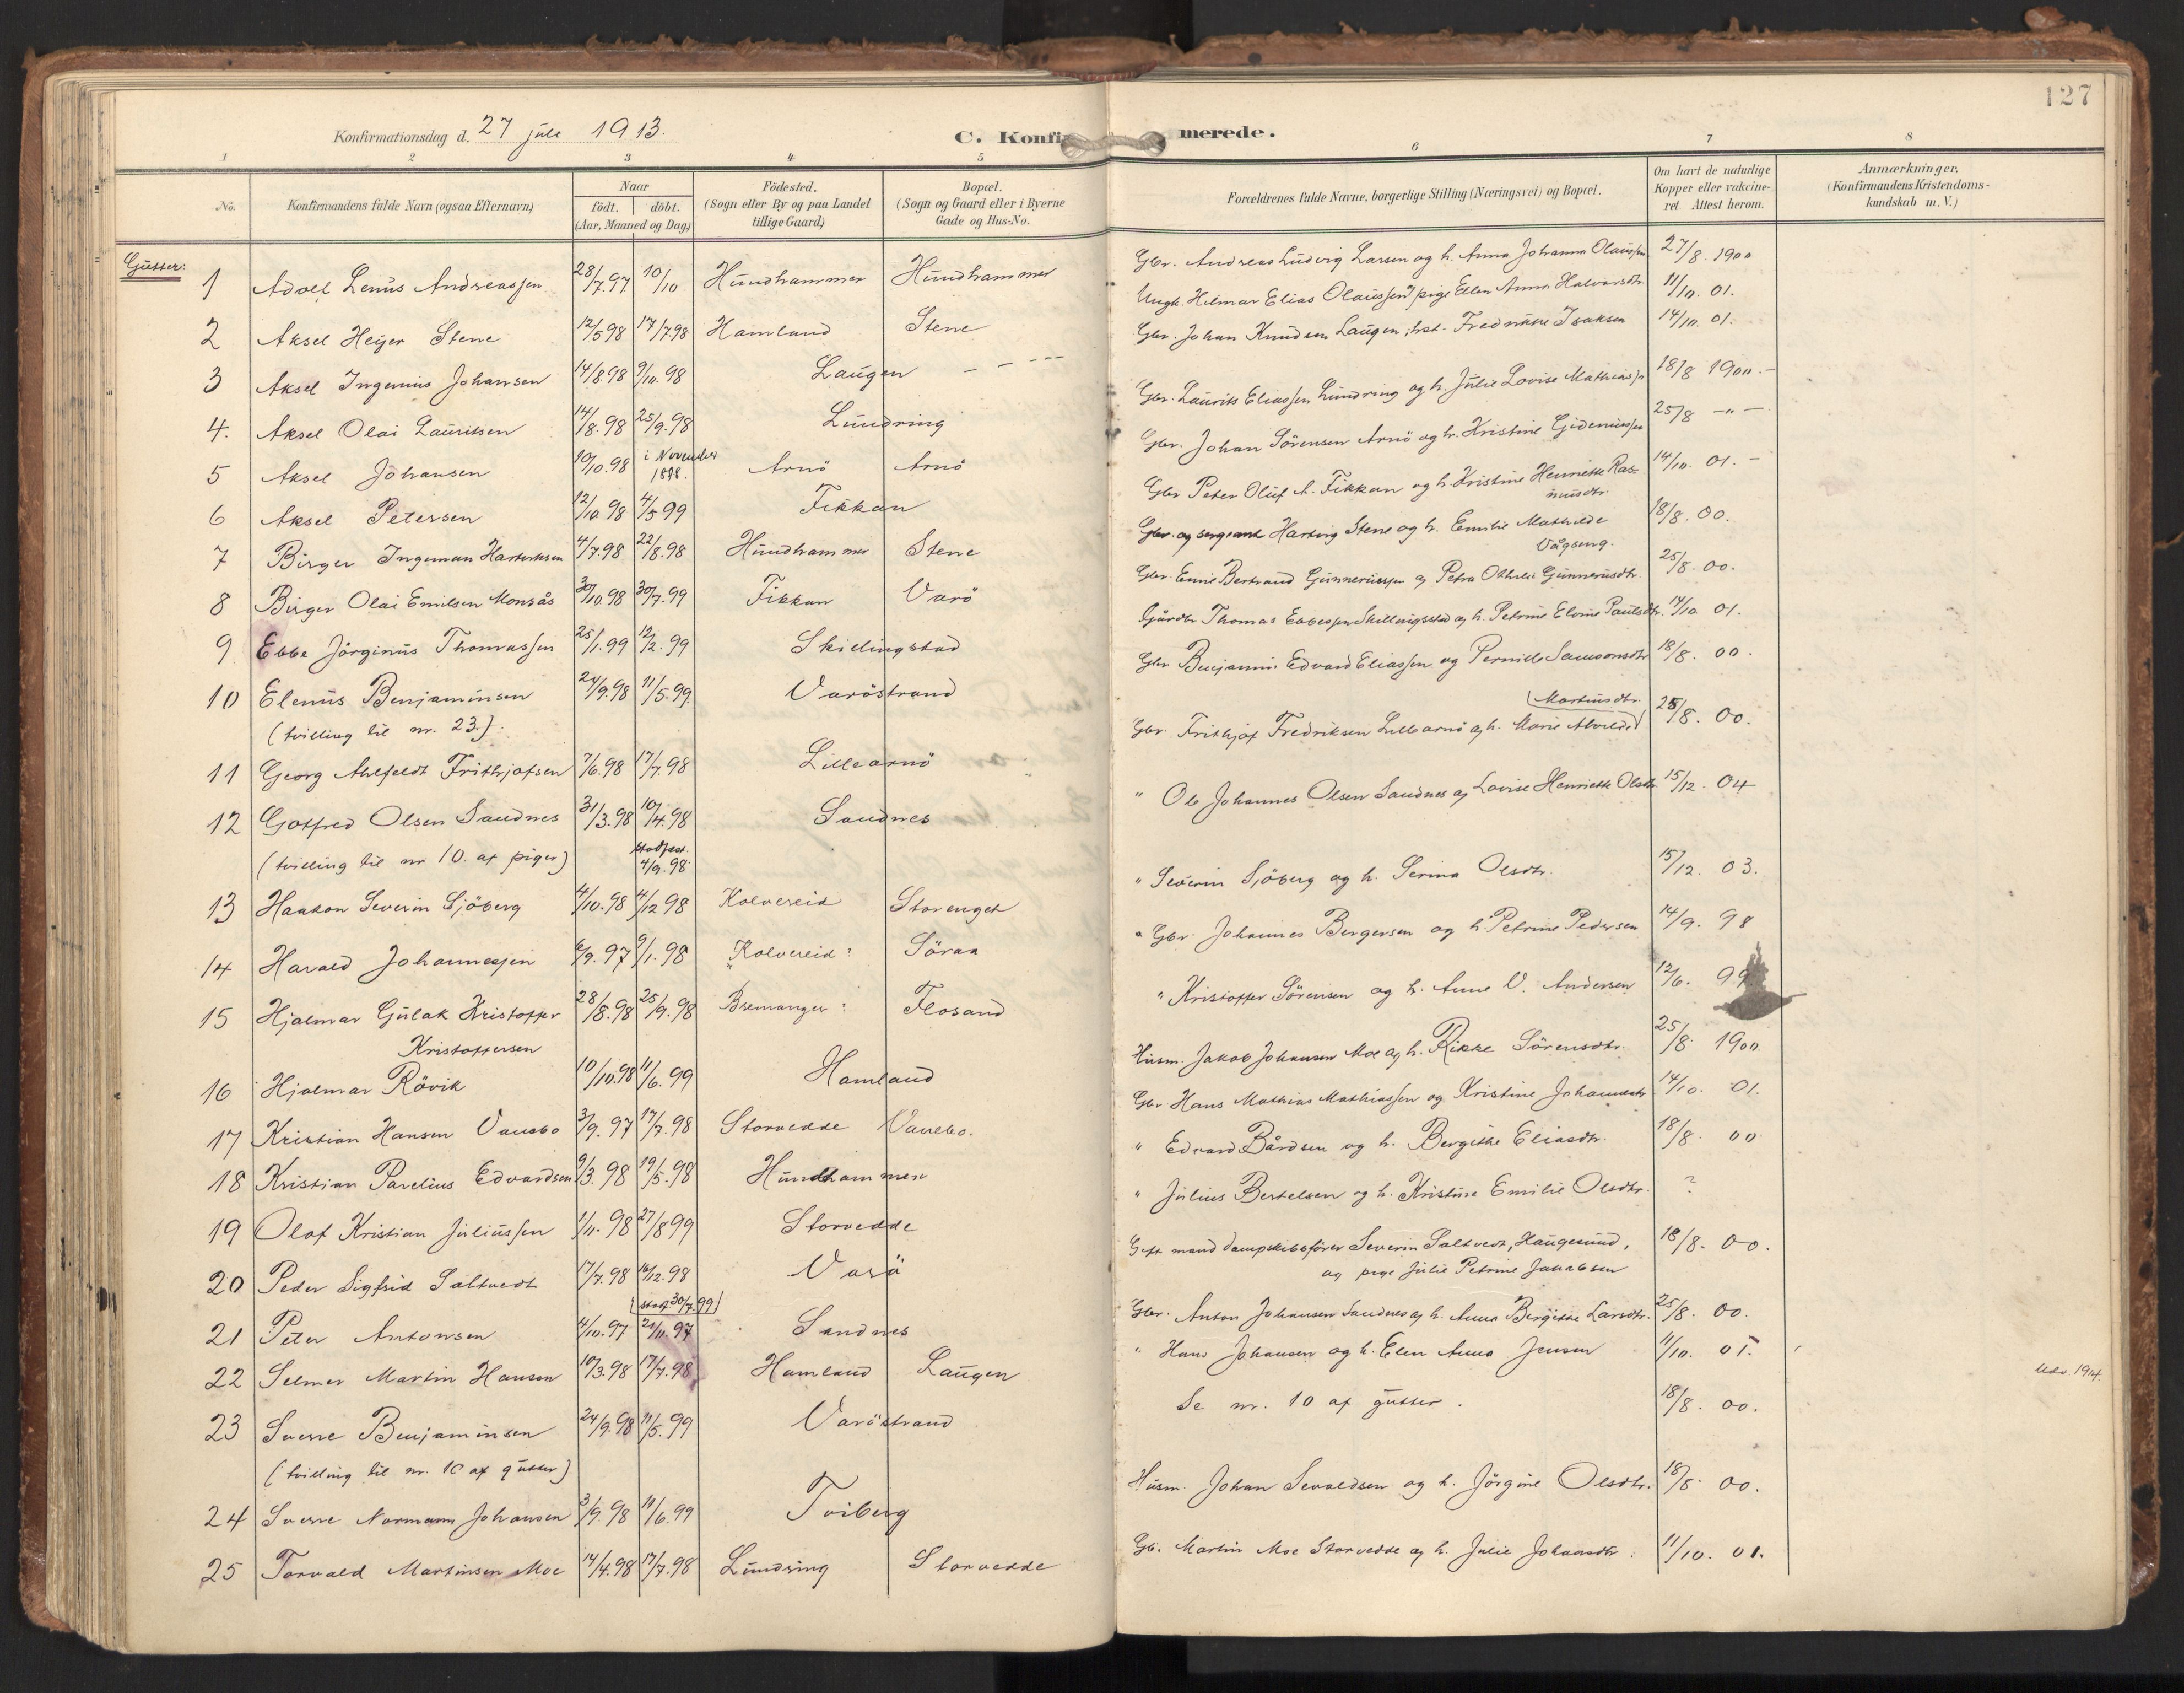 127
Konfirmationsdag d. 27 juli 1913.
C. Konfir merede.
1 2 3 4 5 6 7 8
No.
Konfirmandens fulde Navn (ogsaa Efternavn)
Naar
födt. döbt.
(Aar, Maaned og Dag)
Födested.
(Sogn eller By og paa Landet
tillige Gaard)
Bopæl.
(Sogn og Gaard eller i Byerne
Gade og Hus-No.
Forældrenes fulde Navne, borgerlige Stilling (Næringsvei) og Bopæl.
Om havt de naturlige
Kopper eller vakcine-
ret. Attest herom.
Anmærkninger,
(Konfirmandens Kristendoms-
kundskab m. V.)
Gutter:
1 Adolf Lenus Andreassen 28/7.97 10/10 Hundhammer Hundhammer
Gbr. Andreas Ludvig Larsen og h. Anna Johanna Olaussen 27/8. 1900
2 Aksel Heyer Stene 12/5 98 17/7.98 Hamland Stene
Ungk. Hilmar Elias Olaussen og pige Ellen Anna Halvorsdtr. 11/10. 01.
3 Aksel Ingenius Johansen 14/8.98 9/10.98 Laugen – – ---
Gbr. Johan Knudsen Laugen, hst. Fredrikke Isaksen 14/10. 01.
4. Aksel Olai Lauritsen 14/8.98 25/9.98 Lundring
Gbr. Laurits Eliassen Lundring og h. Julie Lovise Mathiass. 18/8 1900.-
5 Aksel Johansen 10/10.98 i November
1898. Arnö Arnö
Gbr. Johan Sörensen Arnö og h. Kristine Gideniussen 25/8 -"-
6 Aksel Petersen 12/10 98 4/5 99 Fikkan
Gbr Peter Oluf A. Fikkan og h. Kristine Henriette Ras-
musdtr. 14/10. 01. -
7 Birger Ingeman Hartviksen 4/7.98 22/8.98 Hundhammer Stene
Gbr. og sergeant Hartvig Stene og h. Emilie Mathilde
Vågseng. 18/8. 00.
8 Birger Olai Emilsen Monsås 30/10.98 30/7.99 Fikkan Varö
Gbr. Emil Bertrand Gunneriussen og Petra Othilie Gunnerusdtr. 25/8. 00.
9 Ebbe Jörginus Thomassen 25/1.99 12/2.99 Skillingstad
Gårdbr Thomas Ebbesen Skillingstad og h. Petrine Eline Paulsdtr. 14/10 01.
10 Elenus Benjaminsen 24/9.98 11/5.99. Varöstrand
(tvilling til nr. 23.)
Gbr Benjamin Edvard Eliassen og Pernille Samsonsdtr 18/8. 00.
11 Georg Ahlfeldt Frithjofsen 7/6.98 17/7.98 Lillearnö
Gbr. Frithjof Fredriksen Lillearnö og h. Marie Alvilde (Martinsdtr.) 25/8. 00.
12 Gotfred Olsen Sandnes 31/3.98 10/4.98 Sandnes
(tvilling til nr 10. af piger) stadfæst. 4/9.98.
" Ole Johannes Olsen Sandnes og Lovise Henriette Olsdtr. 15/12. 04
13 Haakon Severin Sjöberg 4/10.98 4/12 98 Kolvereid Storenget
" Severin Sjöberg og h. Serina Olsdtr. 15/12. 03.
14 Harald Johannessen 6/9.97 9/1.98 Kolvereid: Söraa
" Gbr. Johannes Bergersen og h. Petrine Pedersen 14/9. 98
15 Hjalmar Gulak Kristoffer
Kristoffersen 28/8.98 25/9.98 Bremanger: Flosand
" Kristoffer Sörensen og h. Anne V. Andersen 12/6. 99.
16 Hjalmar Rövik 10/10.98 11/6.99 Hamland
Husm. Jakob Johansen Moe og h. Rikke Sörensdtr. 25/8. 1900.
17 Kristian Hansen Vansbo 3/9.97 17/7.98 Storvedde Vanebo.
Gbr Hans Mathias Mathiassen og Kristine Johansdtr 14/10. 01.
18 Kristian Parelius Edvardsen 9/3.98 19/5.98 Hundhammer
" Edvard Bårdsen og h. Bergithe Eliasdtr. 18/8. 00
19 Olaf Kristian Juliussen 1/11.98 27/8 99 Storvedde
" Julius Bertelsen og h. Kristine Emilie Olsdtr. ?
20 Peder Sigfrid Saltvedt 17/7.98 16/12.98
(stadf 30/7.99) Varö
Gift mand dampskibsförer Severin Saltvedt, Haugesund,
og pige Julie Petrine Jakobsen 18/8. 00.
21 Peter Antonsen 4/10.97 21/11.97 Sandnes
Gbr. Anton Johansen Sandnes og h. Anna Bergithe Larsdtr. 25/8. 00.
22 Selmer Martin Hansen 10/3.98 17/7.98 Hamland Laugen
" Hans Johansen og h. Elen Anna Jensen 11/10. 01.
Udv. 1914.
23 Sverre Benjaminsen 24/9.98 11/5.99 Varöstrand
(tvilling til nr. 10 af gutter)
Se nr. 10 af gutter. 18/8. 00.
24 Sverre Normann Johansen 3/9.98 11/6.99 Tviberg
Husm. Johan Sevaldsen og h. Jörgine Olsdtr. 18/8. 00.
25 Torvald Martinsen Moe 14/4.98 17/7.98 Lundring Storvedde
Gb. Martin Moe Storvedde og h. Julie Johansdtr. 11/10. 01.